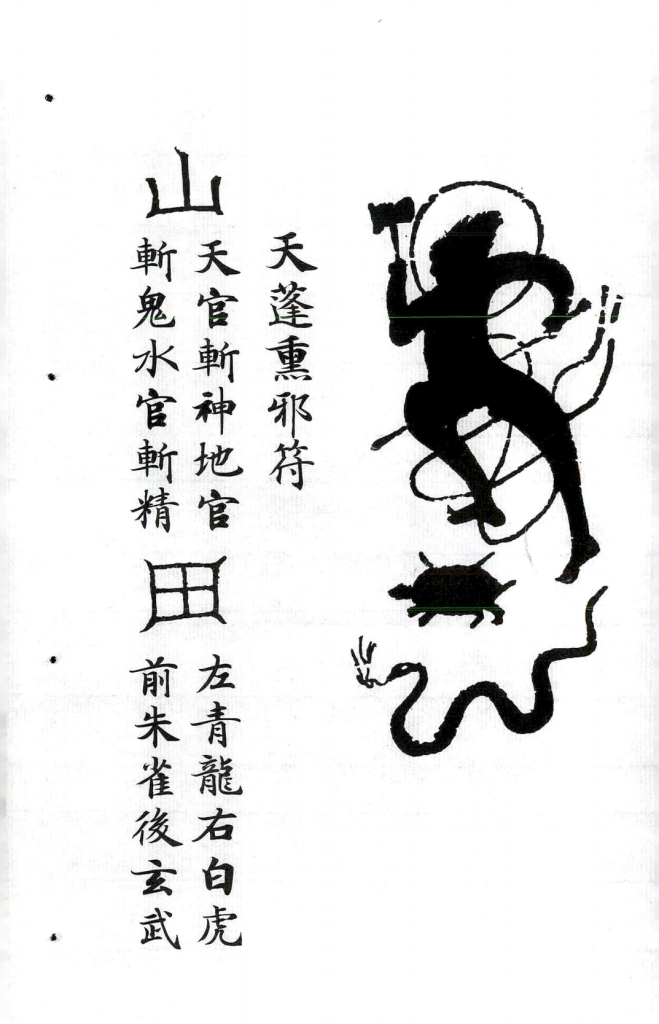 天蓬熏邪符
山
天官斬神地官
斬鬼水官斬精
田
左青龍右白虎
前朱雀後玄武